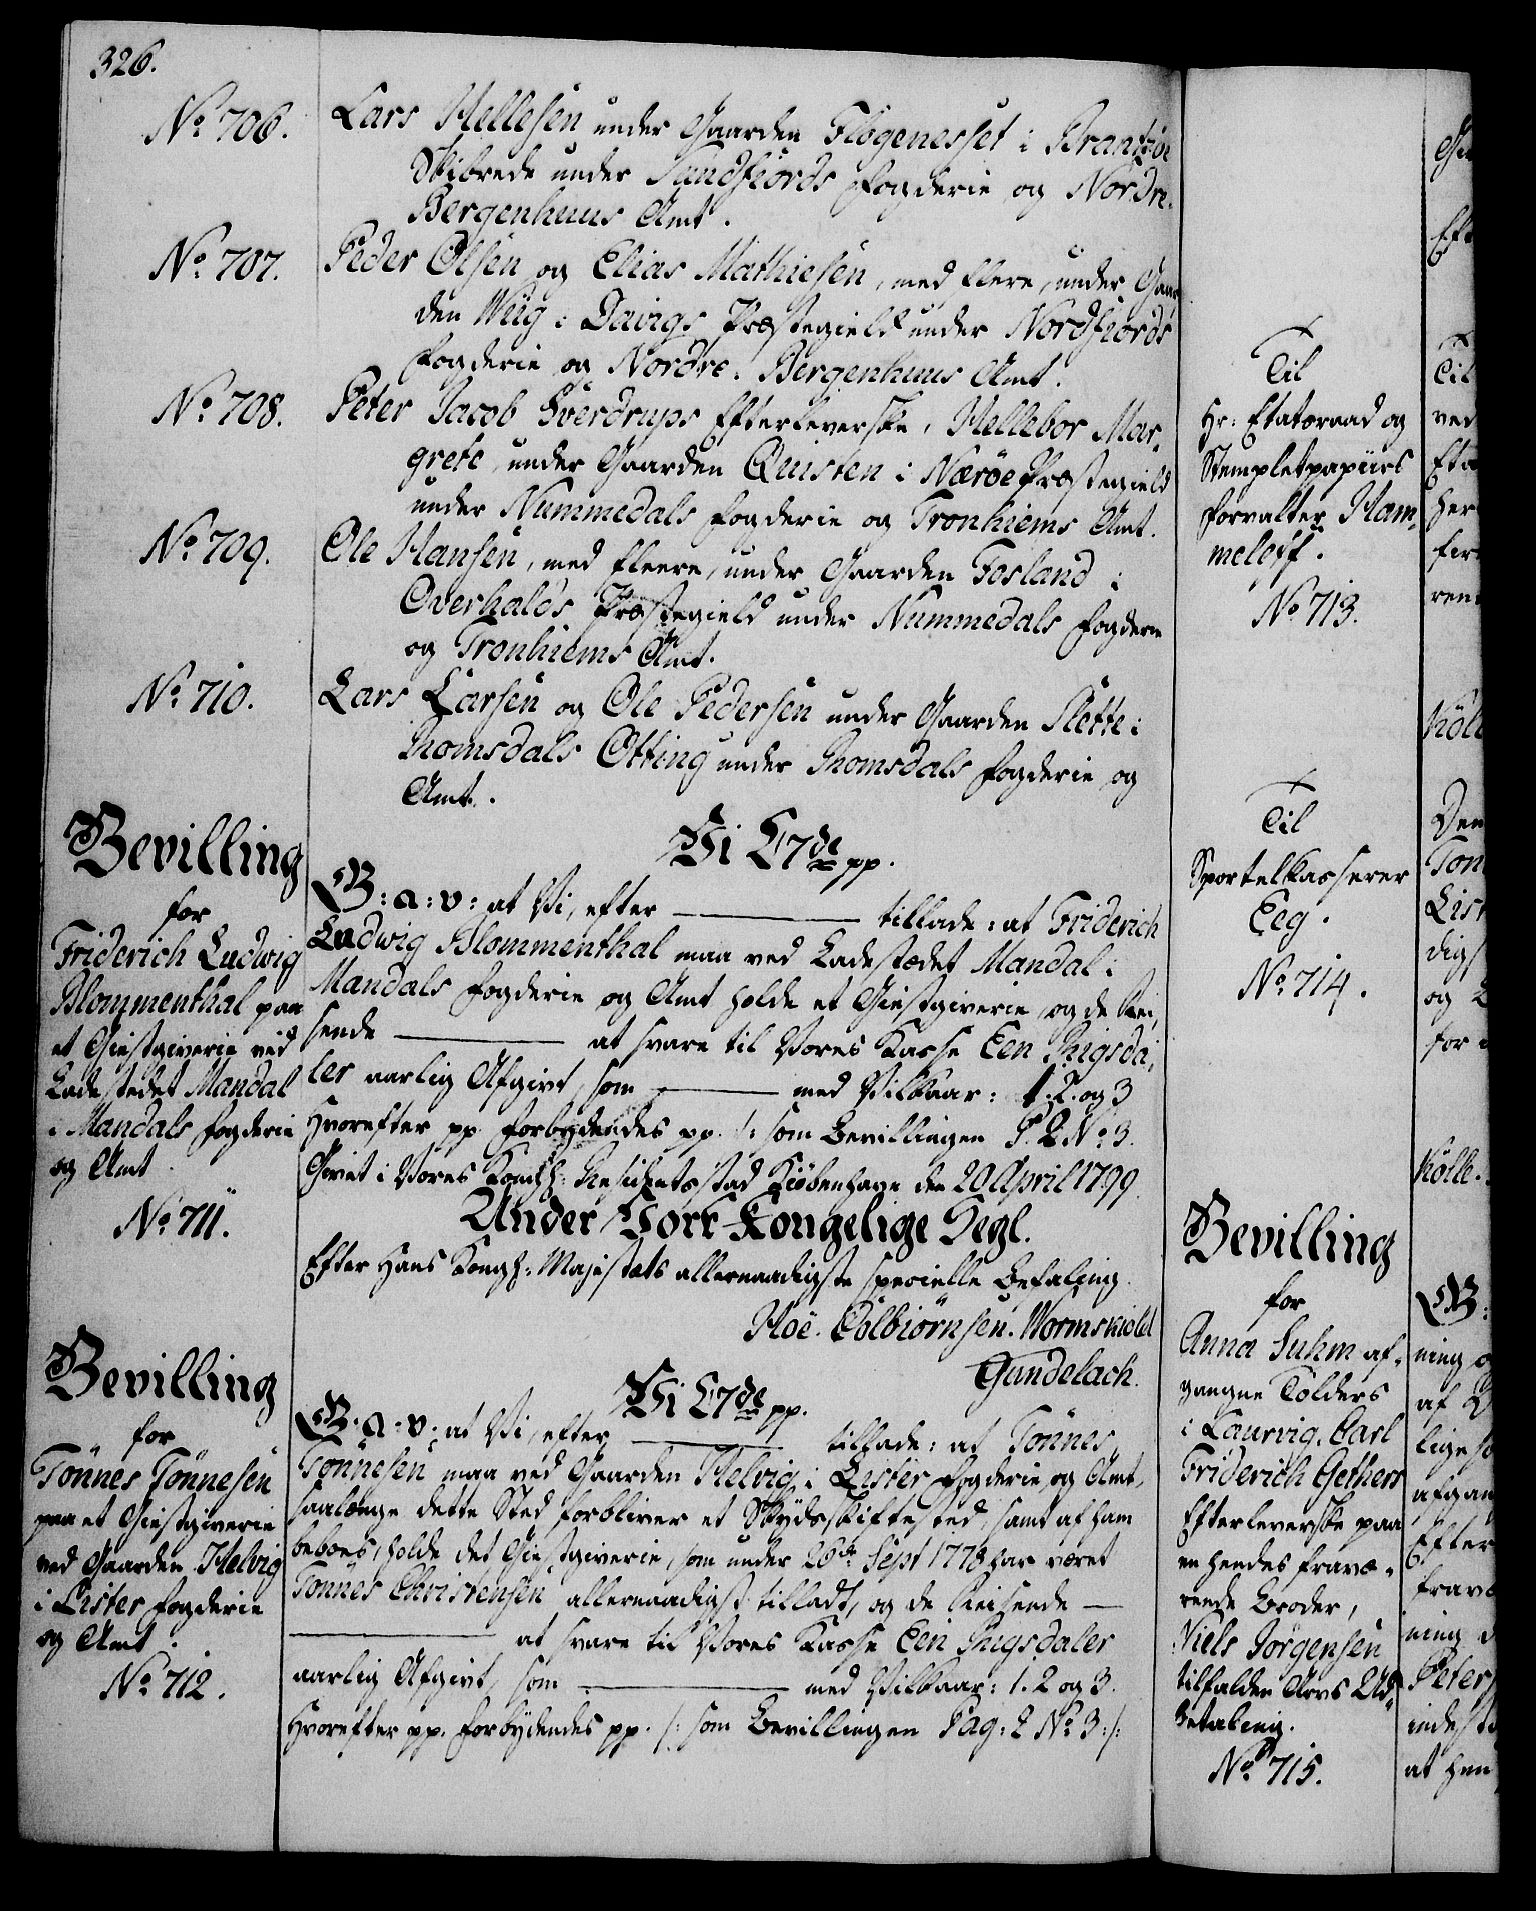 326.
No 706.
Lars Hellesen under Gaarden Flögenesset i
Skibrede under Sundfiords Fogderie og Nordre
Bergenhuus Amt.
No 707.
Peder Olsen og Elias Mathiesen, med flere, under Gaar
den Wiig i Davigs Præstegield under Nordfiords
Fogderie og Nordre. Bergenhuus Amt.
No 708.
Peter Jacob Sverdrups Efterleverske, Hellebor Mar,
grete, under Gaarden Quisten i Næröe Præstegield
under Nummedals Fogderie og Tronhiems Amt.
No 709.
Ole Hansen, med fleere, under Gaarden Fosland i
Overhalds Præstegield under Nummedals Fogderie
og Tronhiems Amt.
No 710.
Lars Larsen og Ole Pedersen under Gaarden Slette i
Romsdals Otting under Romsdals Fogderie og
Amt.
Bevilling
for
Friderich Ludwig
Blommenthal paa
et Giestgiverie ved
Ladestedet Mandal
i Mandals Fogderie
og Amt.
No 711.
Vi C7de pp.
G: a: v: at Vi, efter ——— tillade: at Friderich
Ludwig Blommenthal maa ved Ladestædet Mandal i
Mandals Fogderie og Amt holde et Giestgiverie, og de Rei,
sende ——— at svare til Vores Kasse Een Rigsda,
ler aarlig Afgivt, som ——— med Vilkaar: 1. 2. og 3
Hvorefter pp. Forbydendes pp. /: som Bevillingen P. 2 No 3.
Givet i Vores Kongl: Residentsstad Kiöbenhavn den 20 April 1799.
Under Vort Kongelige Segl.
Efter Hans Kongl: Majestæts allernaadigste specielle Befaling.
Hoë. Colbiörnsen. Wormskiold
Gundelach.
Bevilling
for
Tönnes Tönnesen
paa et Giestgiverie
ved Gaarden Helvig
i Lister Fogderie
og Amt.
No 712.
Vi C7de pp.
G. a. v. at Vi, efter ——— tillade: at Tönnes
Tönnesen maa ved Gaarden Helvig i Lister Fogderie og Amt,
saalænge dette Sted forbliver et Skydsskiftested, samt af ham
beboes, holde det Giestgiverie, som under 26de Sept 1778 har været
Tönnes Christensen allernaadigst tilladt, og de Reisende —
——— at svare til Vores Kasse Een Rigsdaler
aarlig Afgivt, som ——— med Vilkaar: 1. 2 og 3.
Hvorefter pp. Forbydendes pp. /: som Bevillingen Pag: 2 No 3 :/:
Til
Hr: Etatsraad og
Stempletpapiirs
Forvalter Ham,
meleff.
No 713.
Til
Sportelkasserer
Eeg.
No 714.
Bevilling
for
Anna Suhm af,
gangne Tolders
i Laurvig, Carl
Friderich Gethers
Efterleverske paa
en hendes fravæ,
rende Broder,
Niels Jörgensen
tilfalden Arvs Ud,
betaling.
No 715.
Til
ved
Den
og
for
G:
ning
af
lige
Efter
ning
Peter
at hen